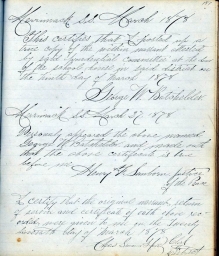 Merrimack ss. March 1878
This certifies that I posted up a
true copy of the within warrant attested
by
of the school house in said district on
the fourth day of March 1878
George W. Batchelder
Merrimack ss March 27 1878
Personally appeared the above named
George W. Batchelder and made oath
that the above certificate is true
before me
Henry W. Sanborn Justice
of the Peace
I certify that the original warrant, return
of and certificate of oath above rec
orded, were given to me the twenty
day of March 1878
Clerk